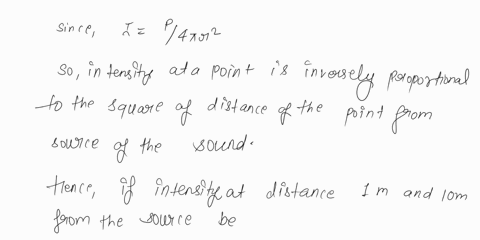 since, I = P/4πr²
so, intensity at a point is inversely proportional
to the square of distance of the point from
source of the sound.
Hence, if intensity at distance 1 m and 10m
from the source be